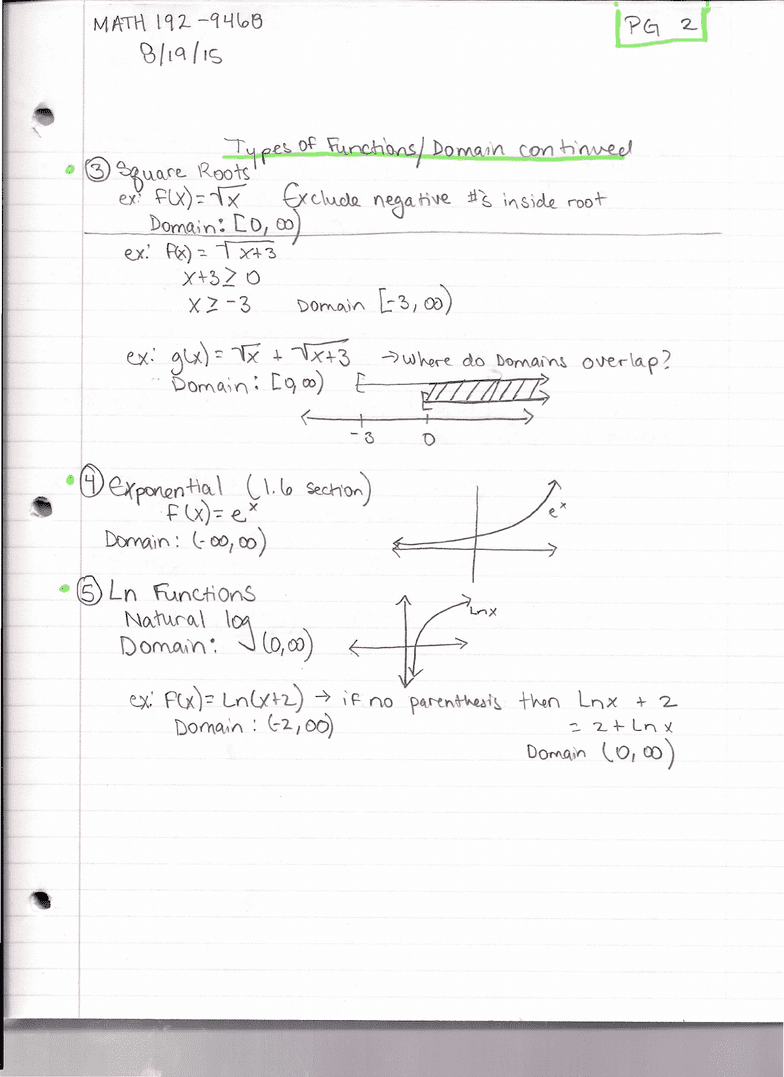 MATH 192-946B
PG 2
8/19/15
Types of Functions/Domain continued
③ Square Roots
ex: f(x)=√x Exclude negative #'s inside root
Domain: [0, ∞)
ex: f(x) = √x+3
x+3 ≥ 0
x ≥ -3 Domain [-3, ∞)
ex: g(x) = √x + √x+3 → where do Domains overlap?
Domain: [0, ∞)
-3 0
④ Exponential (1.6 section)
f(x)= e^x
e^x
Domain: (-∞, ∞)
⑤ Ln Functions
Natural log
Lnx
Domain: (0,∞)
ex: f(x)= Ln(x+2) → if no parenthesis then Lnx + 2
Domain: (-2, ∞) = 2 + Ln x
Domain (0, ∞)